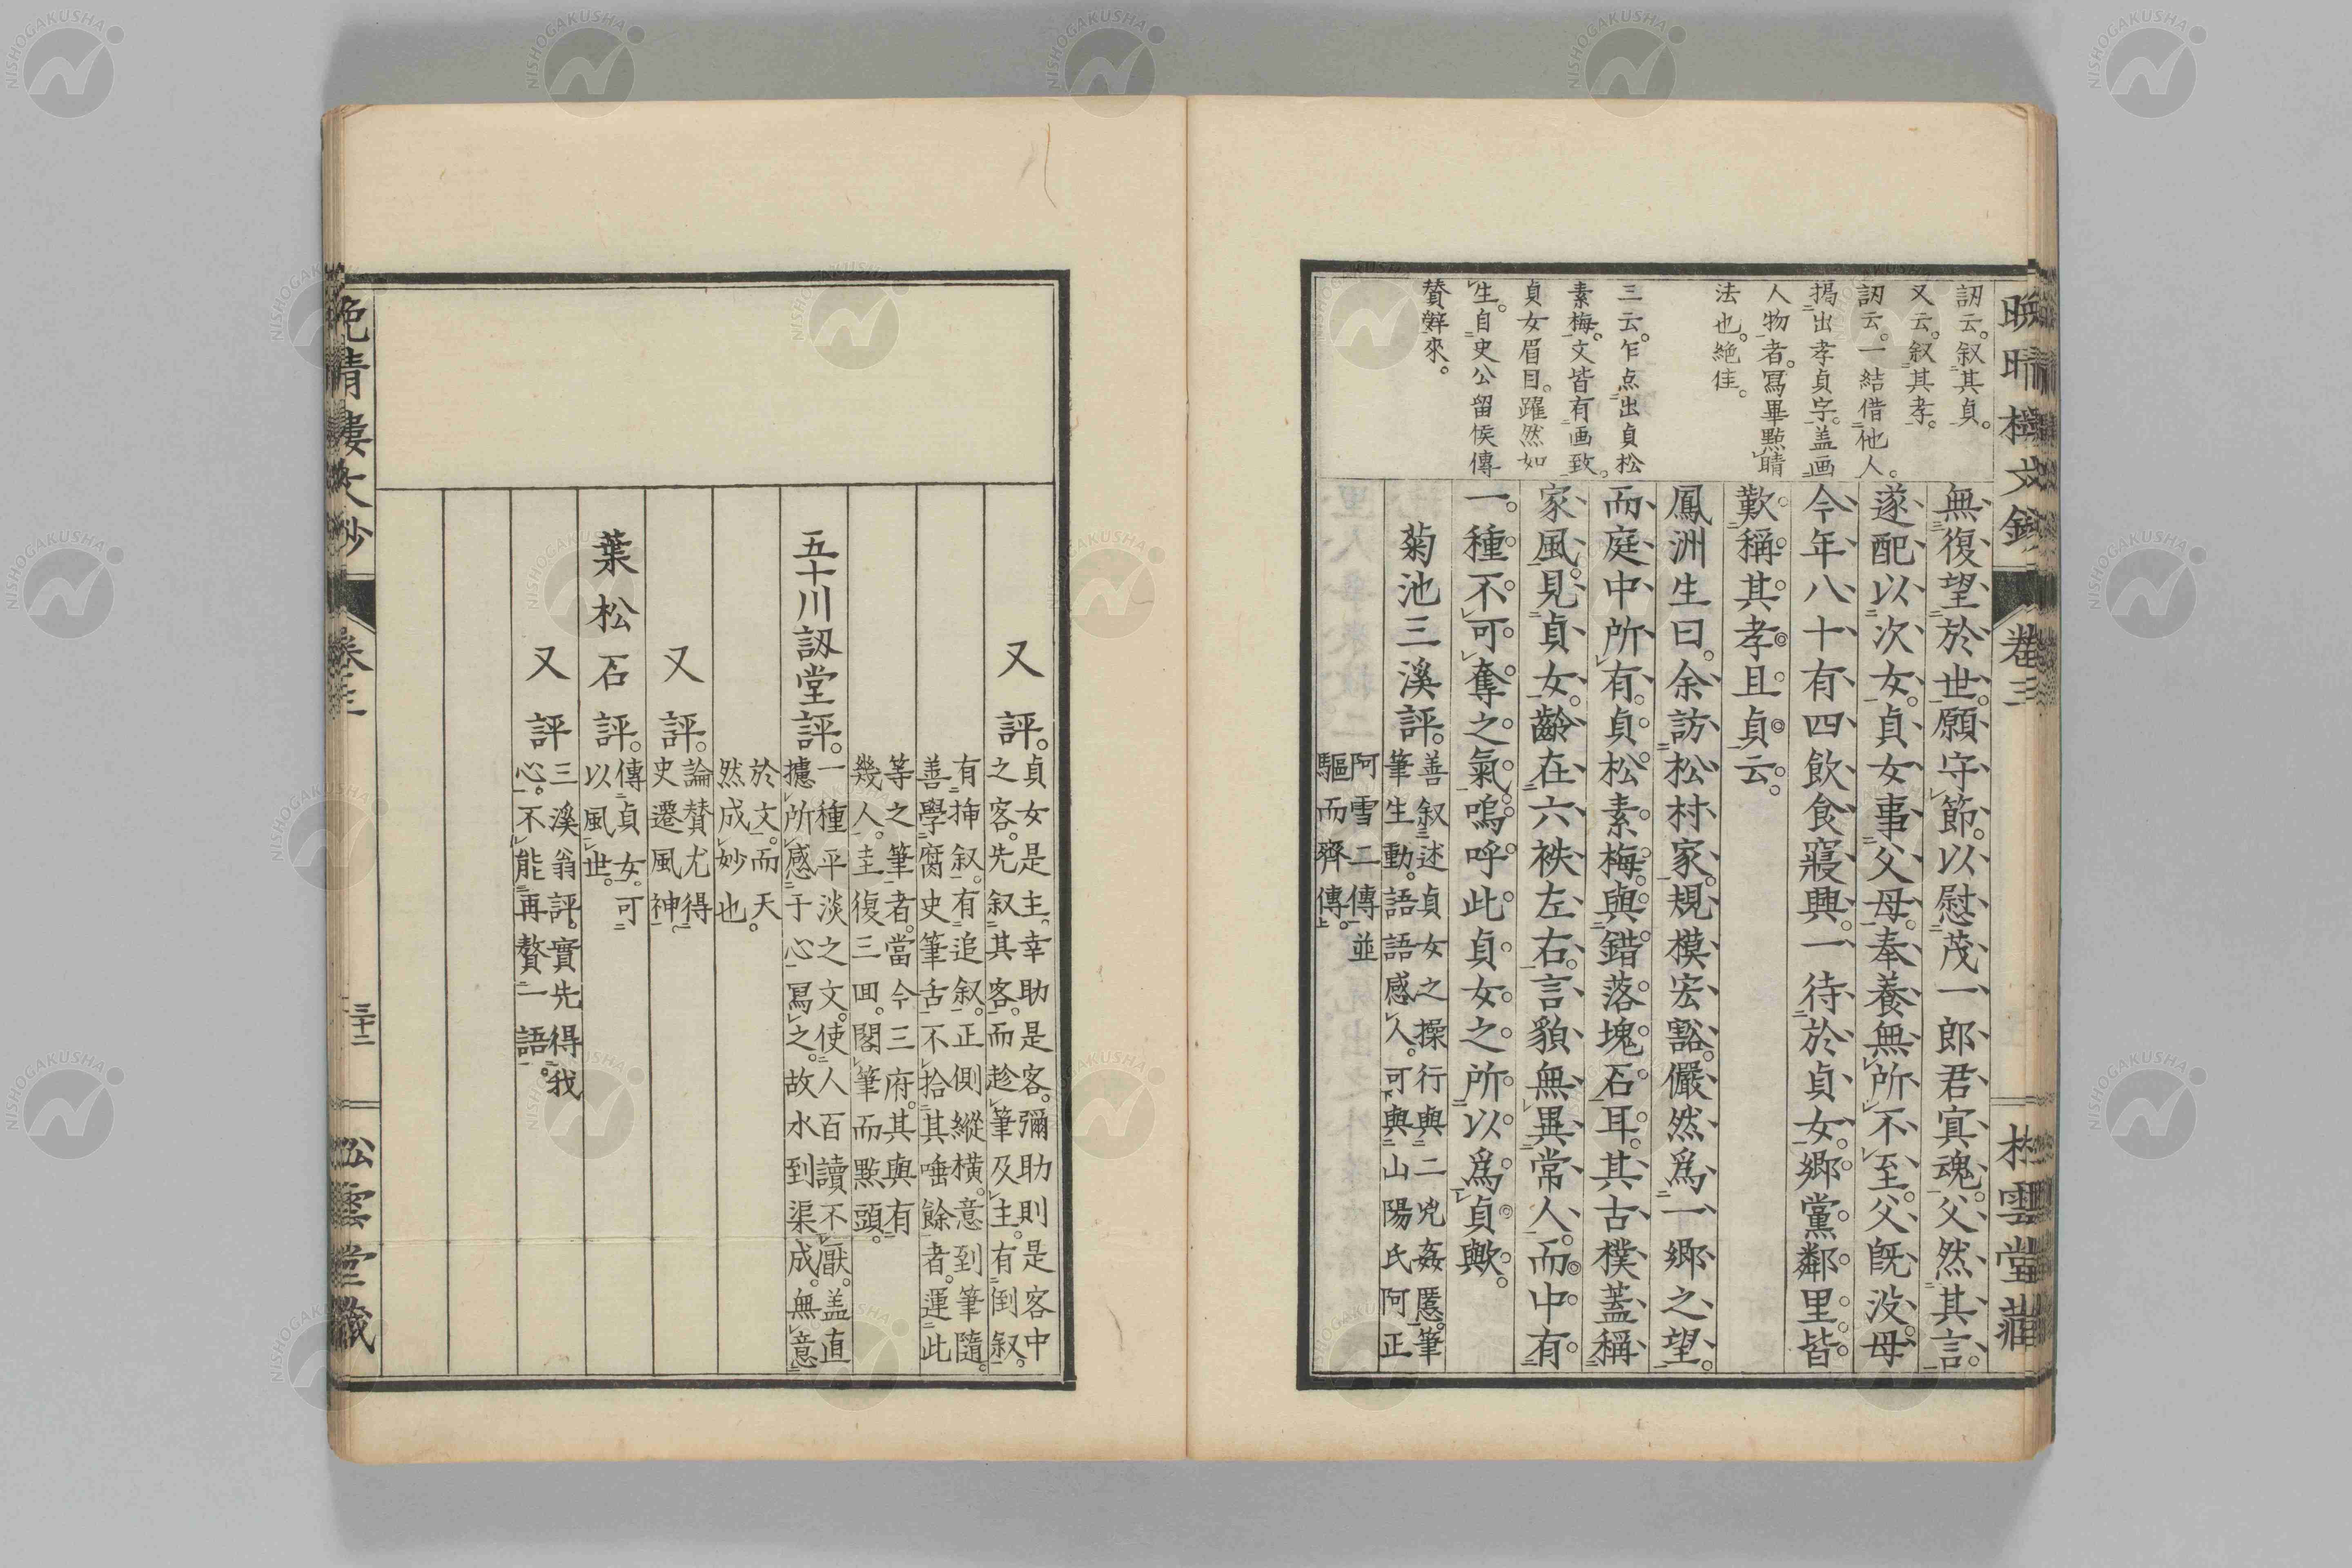 訒云。叙其貞。
又云。叙其孝。
訒云。一結借他人。
揭出孝貞字。盖画
人物者。寫畢㸃睛
法也。絶佳。
三云。乍点出貞松
素梅。文皆有画致。
貞女眉目。躍然如
生。自史公留侯傳
賛辭來。
無復望於世。願守節。以慰茂一郎君寘魂。父然其言。
遂配以次女。貞女事父母。奉養無所不至。父既没。母
今年八十有四飲食寢興。一待於貞女。郷黨鄰里。皆
歎稱其孝且貞云。
鳳洲生曰。余訪松村家。規模宏豁。儼然爲一郷之望。
而庭中所有。貞松素梅。與錯落塊石耳。其古樸蓋稱
家風。見貞女。齡在六袟左右。言貌無異常人。而中有
一種不可奪之氣。嗚呼此貞女之所以爲貞歟。
菊池三溪評。善叙述貞女之操行與二兇姦慝。筆
筆生動。語語感人。可與山陽氏阿正
阿雪二傳並
驅而齊傳。
卷三
又評。貞女是主。幸助是客。彌助則是客中
之客。先叙其客。而趁筆及主。有倒叙。
有挿叙。有追叙。正側縱横。意到筆隨。
善學腐史筆舌。不拾其唾餘者。運此
等之筆者。當今三府。其與有
幾人。圭復三回。閣筆而㸃頭。
五十川訒堂評。一種平淡之文。使人百讀不厭。盖直
攄所感于心寫之。故水到渠成。無意
於文。而天
然成妙也。
又評。論賛尤得
史遷風神
葉松石評。傳貞女。可
以風世。
又評三溪翁評。實先得我
心。不能再贅一語。
卷三
三十二